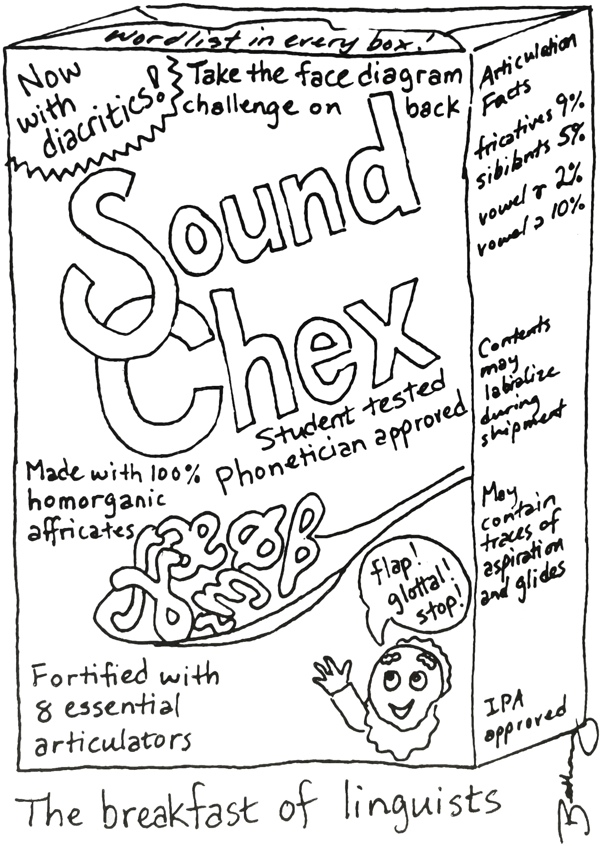 Wordlist in every box!
Now
with
diacritics!
Take the face diagram
challenge on back
Sound
Chex
Student tested
Phonetician approved
Made with 100%
homorganic
affricates
flap!
glottal!
stop!
Fortified with
8 essential
articulators
Articulation
Facts
fricatives 9%
sibilants 5%
vowel ɤ 2%
vowel 10%
Contents
may
labialize
during
shipment
May
contain
traces of
aspiration
and glides
IPA
approved
The breakfast of linguists